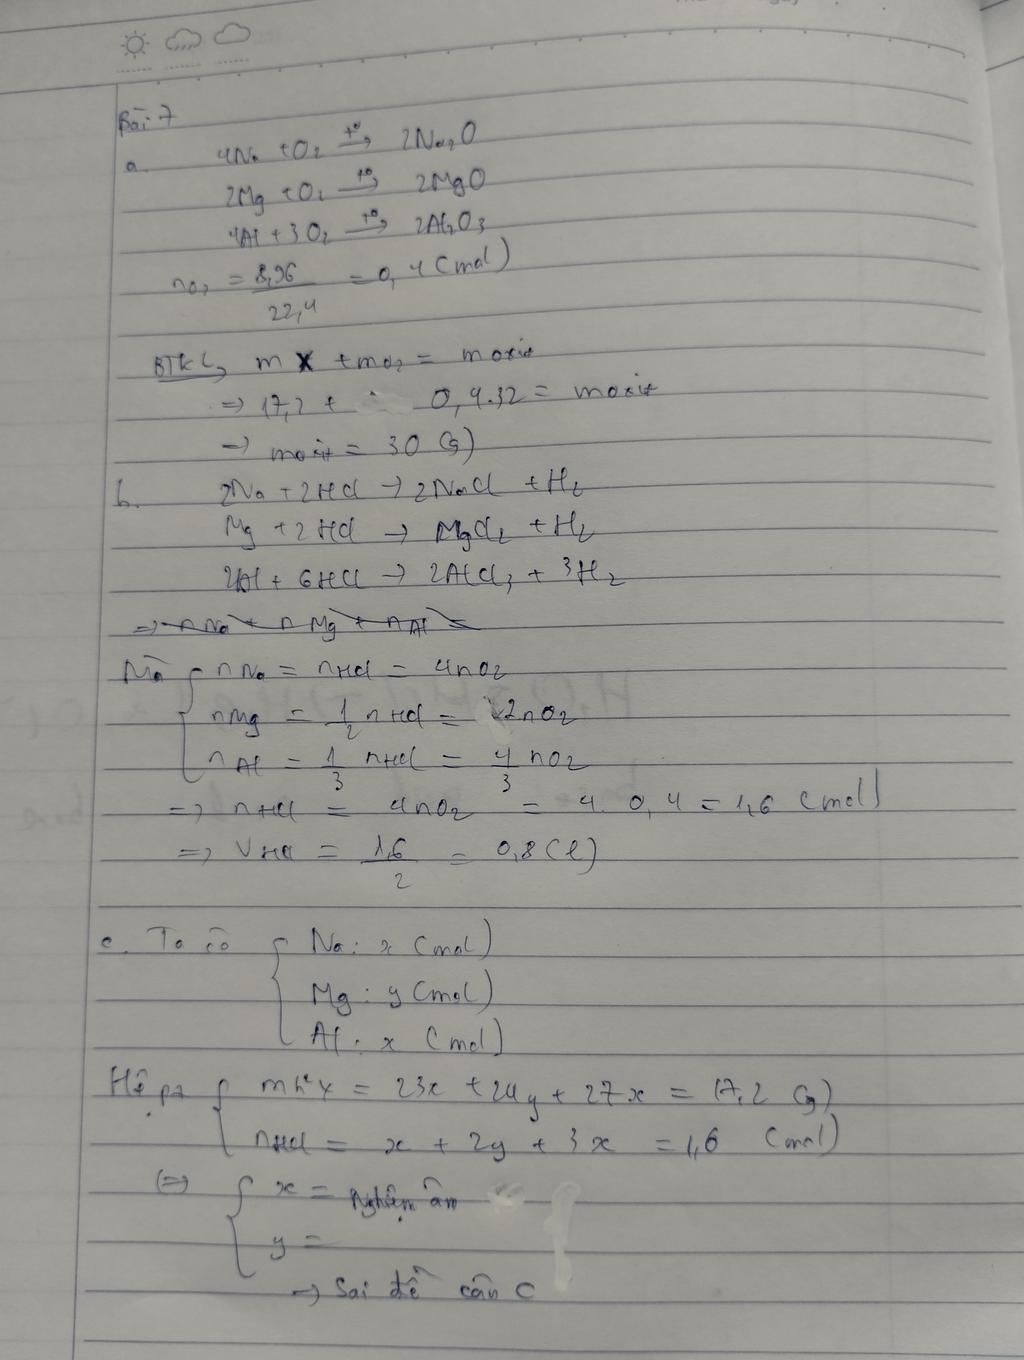 Bài 7
a. 4Na + O₂ t°→ 2Na₂O
2Mg + O₂ t°→ 2MgO
4Al + 3O₂ t°→ 2Al₂O₃
nO₂ = 8,96/22,4 = 0,4 (mol)
BTKL, m X + mO₂ = moxit
=> 17,2 + 0,4.32 = moxit
=> moxit = 30 (g)
b. 2Na + 2HCl → 2NaCl + H₂
Mg + 2HCl → MgCl₂ + H₂
2Al + 6HCl → 2AlCl₃ + 3H₂
=> nNa + nMg + nAl =
Mà { nNa = nHCl = 4nO₂
nMg = 1/2 nHCl = 2nO₂
nAl = 1/3 nHCl = 4/3 nO₂
=> nHCl = 4nO₂ = 4. 0,4 = 1,6 (mol)
=> VHCl = 1,6/2 = 0,8 (l)
c. Ta có { Na: x (mol)
Mg: y (mol)
Al: x (mol)
Hệ pt { mh²X = 23x + 24y + 27x = 17,2 (g)
nHCl = x + 2y + 3x = 1,6 (mol)
(=> { x = Nghiệm âm
y =
→ Sai đề câu c